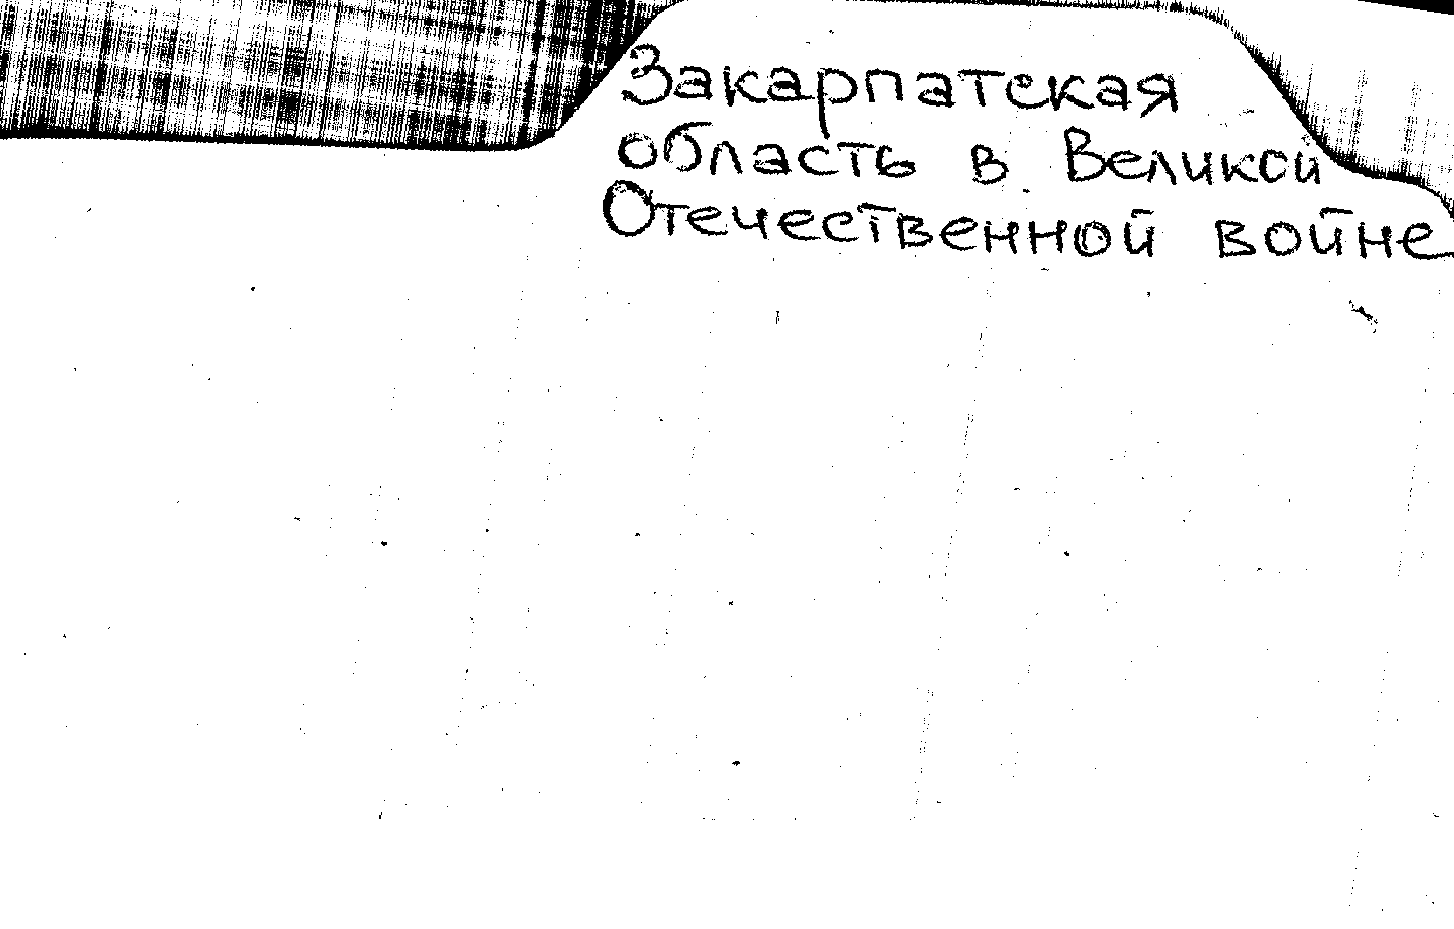 Закарпатская
область в Великой
Отечественной войне